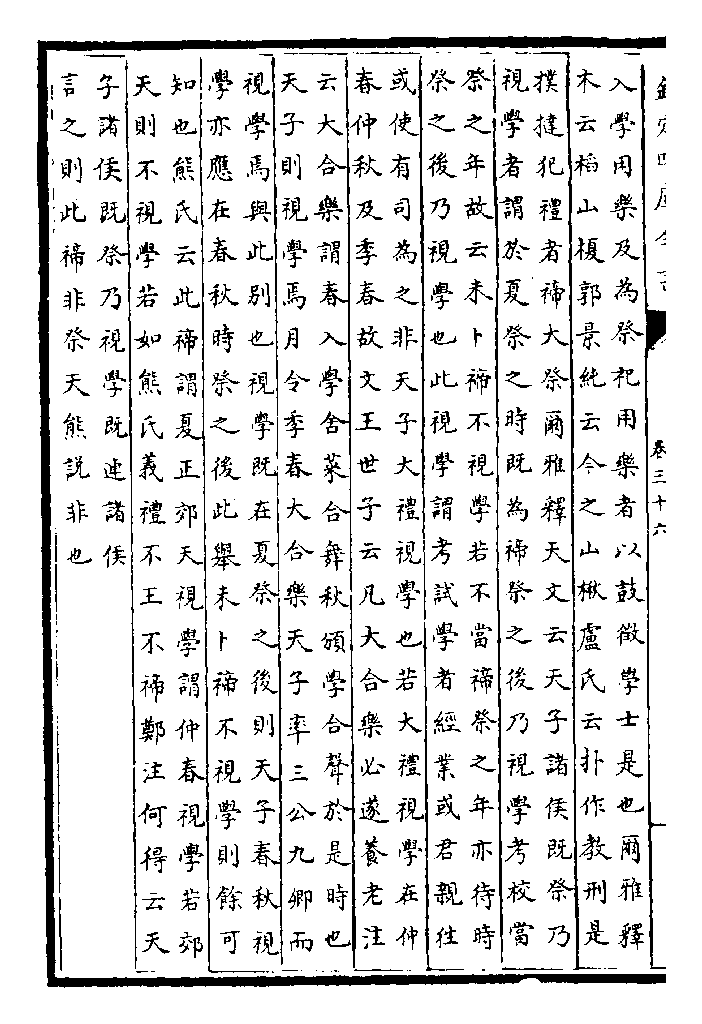 欽定四庫全書
卷三十六
入學用樂及為祭祀用樂者以鼓徵學士是也爾雅釋
木云槄山榎郭景純云今之山楸盧氏云扑作教刑是
撲撻犯禮者禘大祭爾雅釋天文云天子諸侯既祭乃
視學者謂於夏祭之時既為禘祭之後乃視學考校當
祭之年故云未卜禘不視學若不當禘祭之年亦待時
祭之後乃視學也此視學謂考試學者經業或君親往
或使有司為之非天子大禮視學也若大禮視學在仲
春仲秋及季春故文王世子云凡大合樂必遂養老注
云大合樂謂春入學舍菜合舞秋頒學合聲於是時也
天子則視學焉月令季春大合樂天子率三公九卿而
視學焉與此別也視學既在夏祭之後則天子春秋視
學亦應在春秋時祭之後此舉未卜禘不視學則餘可
知也熊氏云此禘謂夏正郊天視學謂仲春視學若郊
天則不視學若如熊氏義禮不王不禘鄭注何得云天
子諸侯既祭乃視學既連諸侯
言之則此禘非祭天熊說非也